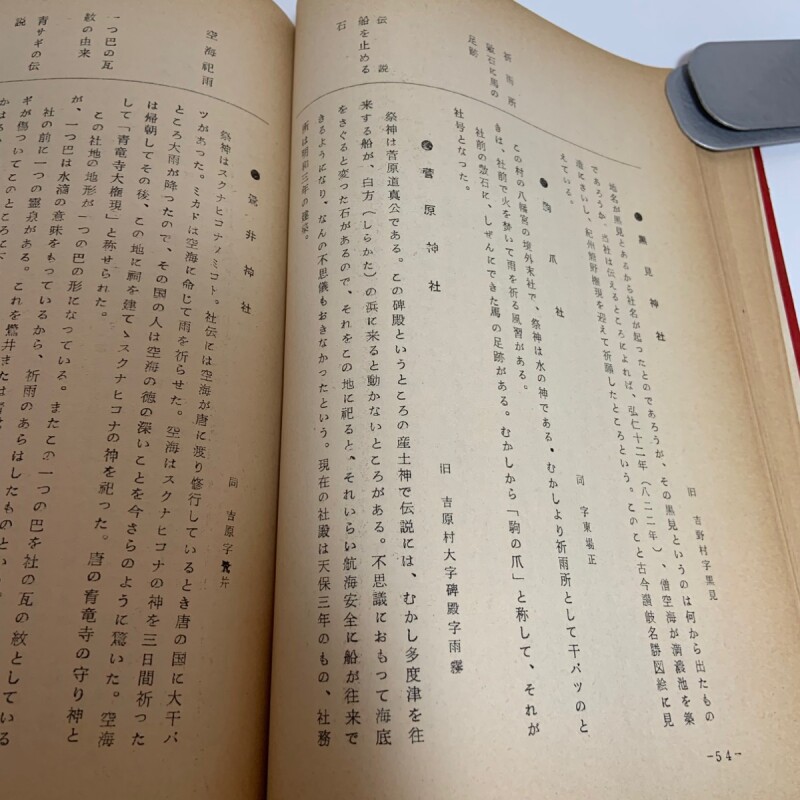 ●黒見神社
旧 吉野村字黒見
地名が黒見とあるから社名が起ったとのであろうが、その黒見というのは何から出たもの
であろうか。当社は伝えるところによれば、弘仁十二年(八二二年)、僧空海が満濃池を築
造にさいし、紀州熊野権現を迎えて祈願したところという。このこと古今讃岐名勝図絵に見
えている。
祈雨所
●駒爪社
同 字東場正
この村の八幡宮の境外末社で、祭神は水の神である・むかしより祈雨所として干バツのと
きは、社前で火を焚いて雨を祈る風習がある。
敷石に馬の
足跡
社前の敷石に、しぜんにできた馬の足跡がある。むかしから「駒の爪」と称して、それが
社号となった。
●菅原神社
旧 吉原村大字碑殿字雨霧
伝説
船を止める
石
祭神は菅原道真公である。この碑殿というところの産土神で伝説には、むかし多度津を往
来する船が、白方(しらかた)の浜に来ると動かないところがある。不思議におもって海底
をさぐると変った石があるので、それをこの地に祀ると、それいらい航海安全に船が往来で
きるようになり、なんの不思議もおきなかったという。現在の社殿は天保三年のもの、社務
所は昭和三年の建築。
-54-
井神社
同 吉原字
空海祀雨
祭神はスクナヒコナノミコト。社伝には空海が唐に渡り修行しているとき唐の国に大干バ
ツがあった。ミカドは空海に命じて雨を祈らせた。空海はスクナヒコナの神を三日間祈った
ところ大雨が降ったので、その国の人は空海の徳の深いことを今さらのように驚いた。空海
は帰朝してその後、この地に祠を建てゝスクナヒコナの神を祀った。唐の青竜寺の守り神と
して「青竜寺大権現」と称せられた。
一つ巴の瓦
紋の由来
この社地の地形が一つの巴の形になっている。またこの一つの巴を社の瓦の紋としている
が、一つ巴は水滴の意味をもっているから、祈雨のあらはしたものという。
青サギの伝
説
社の前に一つの霊泉がある。これを鷺井または
ギが傷ついてこのところに